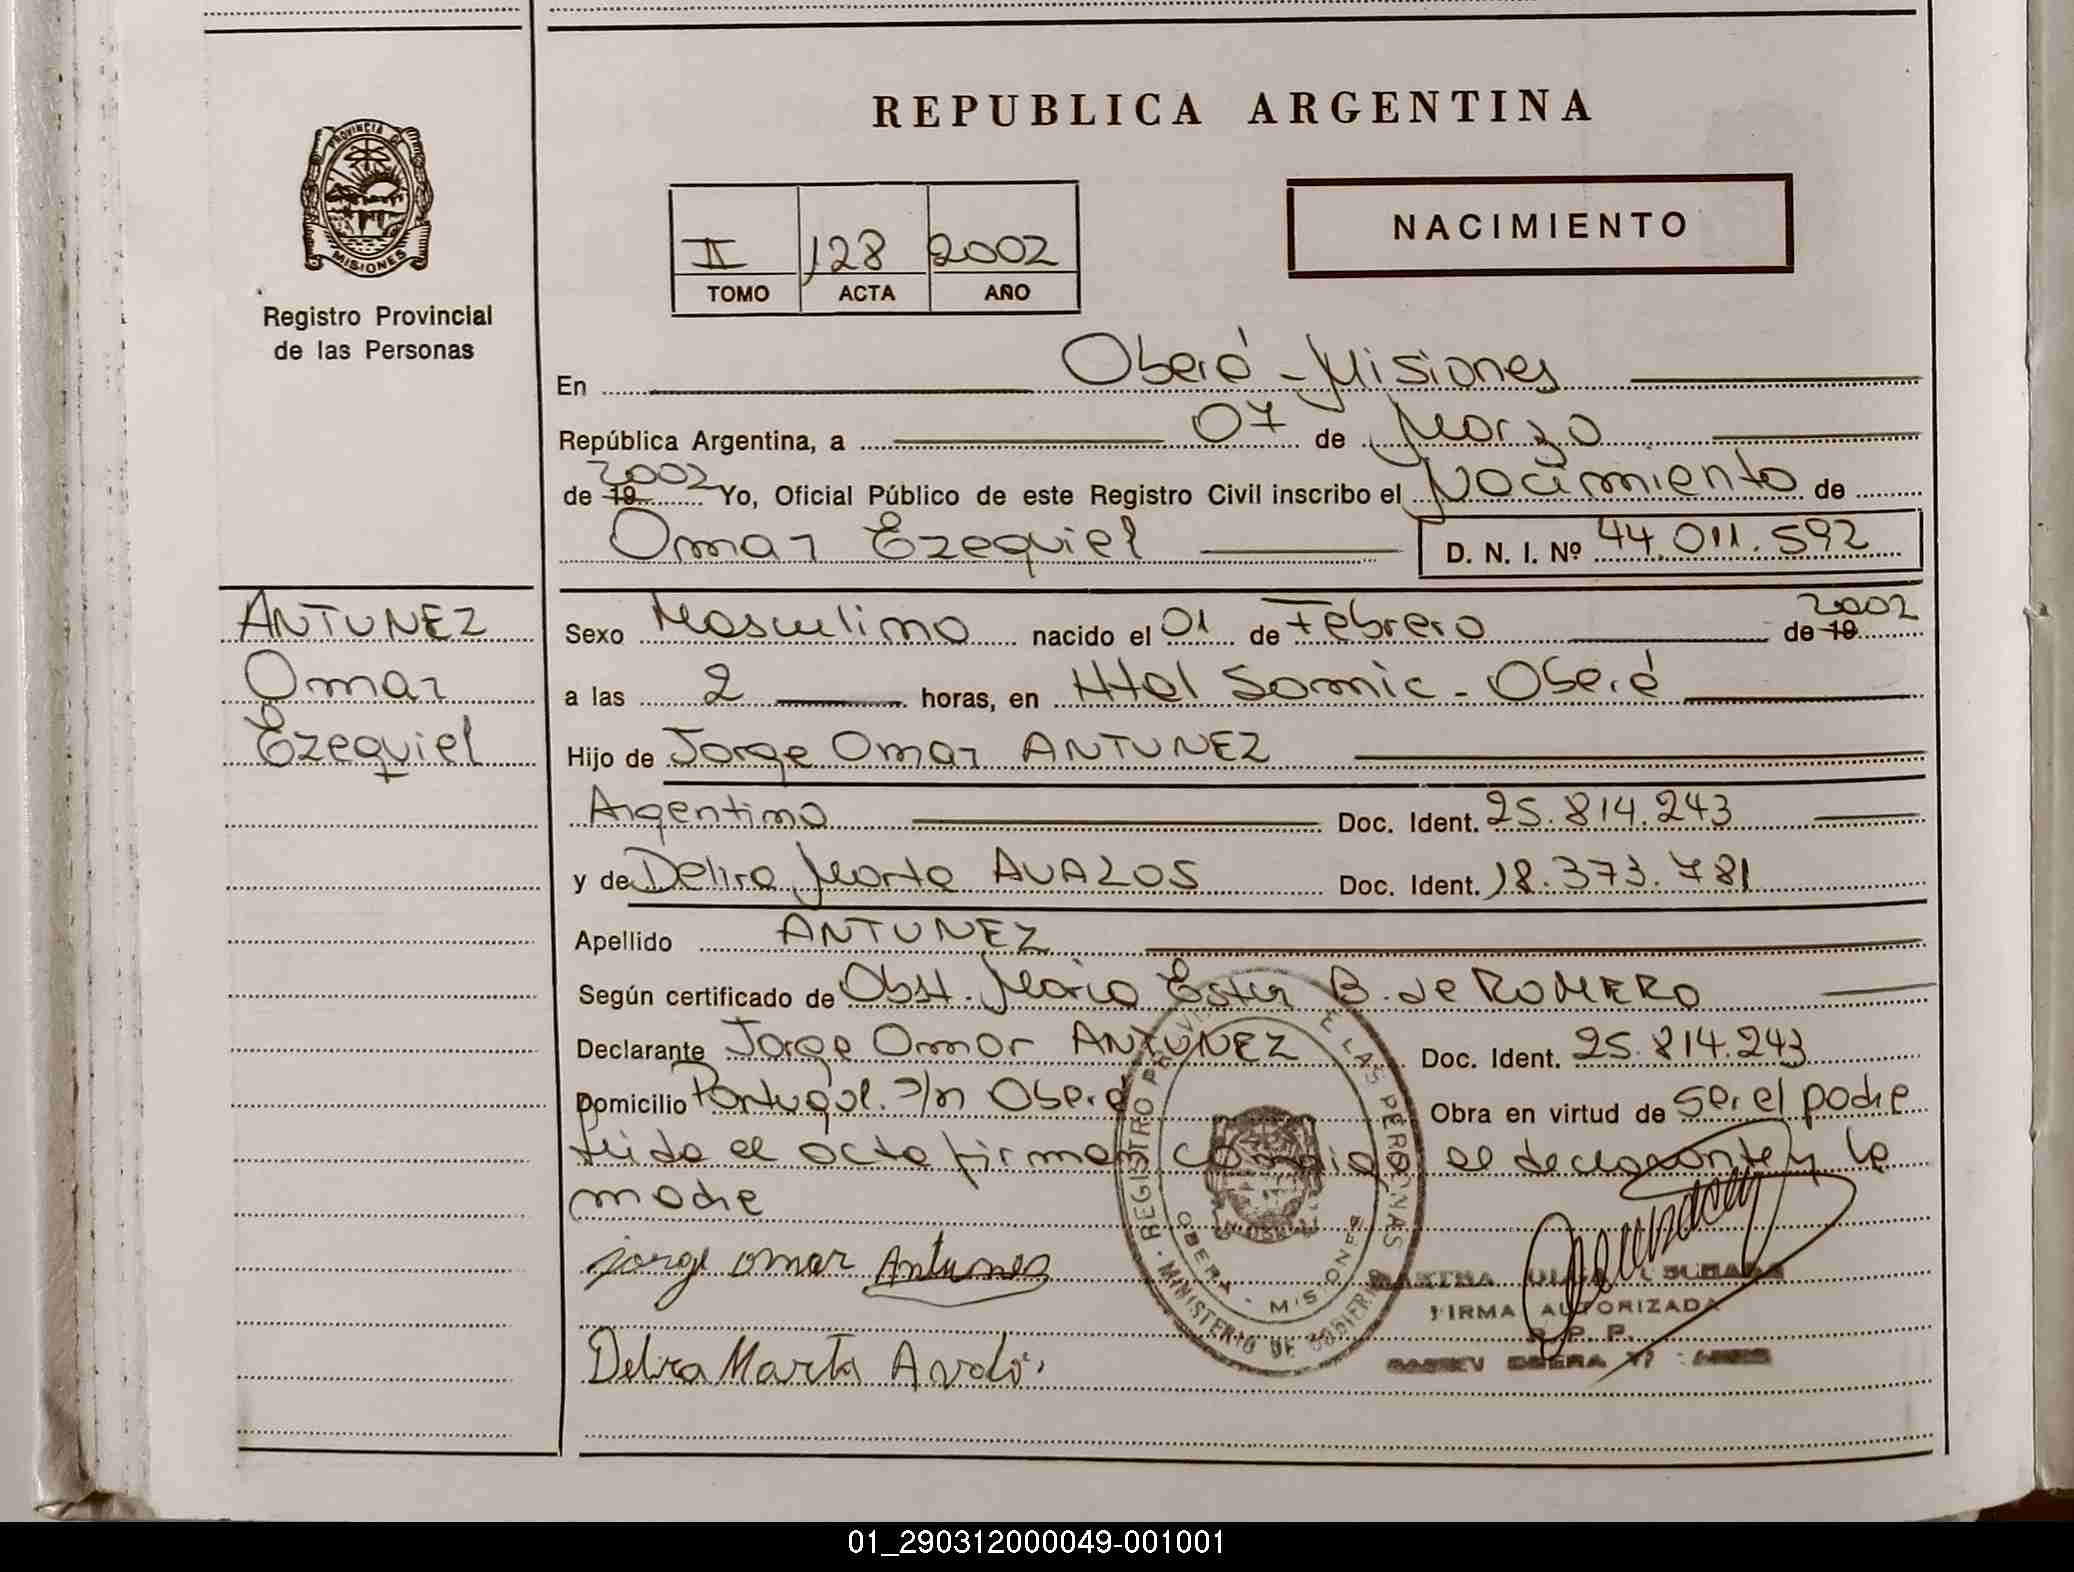 REPUBLICA ARGENTINA
PROVINCIA DE
MISIONES
Registro Provincial
de las Personas
NACIMIENTO
II 128 2002
TOMO ACTA AÑO
En Oberá - Misiones
República Argentina, a 07 de Marzo
de 19 2002 Yo, Oficial Público de este Registro Civil inscribo el Nacimiento de
Omar Ezequiel D. N. I. Nº 44.011.592
ANTUNEZ
Omar
Ezequiel
Sexo Masculino nacido el 01 de Febrero de 19 2002
a las 2 horas, en Htal Samic - Oberá
Hijo de Jorge Omar ANTUNEZ
Argentino Doc. Ident. 25.814.243
y de Delira Marta AVALOS Doc. Ident. 18.373.781
Apellido ANTUNEZ
Según certificado de Obst. María Ester B. de ROMERO
Declarante Jorge Omar ANTUNEZ Doc. Ident. 25.814.243
Domicilio Portugal s/n Oberá Obra en virtud de ser el padre
leida el acta firman conmigo el declarante y la
madre
jorge omar Antunes
Marta
REGISTRO DE LAS PERSONAS
MINISTERIO DE GOBIERNO
OBERA - MISIONES
FIRMA AUTORIZADA
R. P. P.
01_290312000049-001001